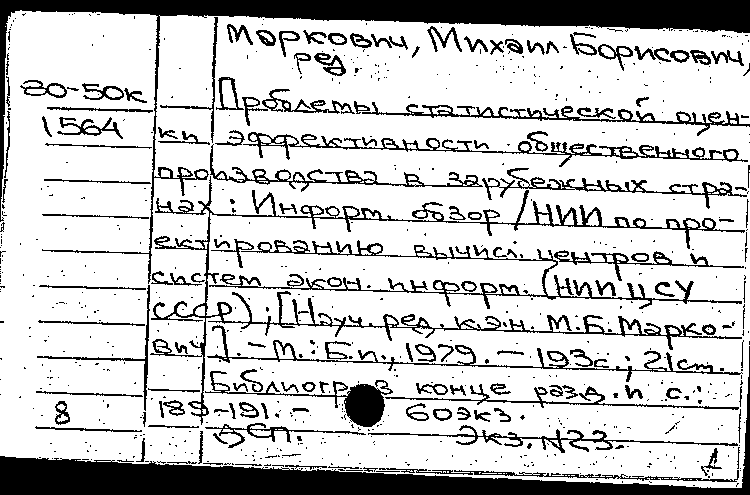 Маркович, Михаил Борисович,
ред.
80-50к
1564
Проблемы статистической оцен-
ки эффективности общественного
производства в зарубежных стра-
нах: Информ. обзор / НИИ по про-
ектированию вычисл. центров и
систем экон. информ. (НИИ ЦСУ
СССР); [Науч. ред. к.э.н. М.Б. Марко-
вич]. - М.: Б.и., 1979. - 193с.; 21см.
Библиогр. в конце разд. и с.:
189-191. - 60экз.
8
Деп. Экз. N23.